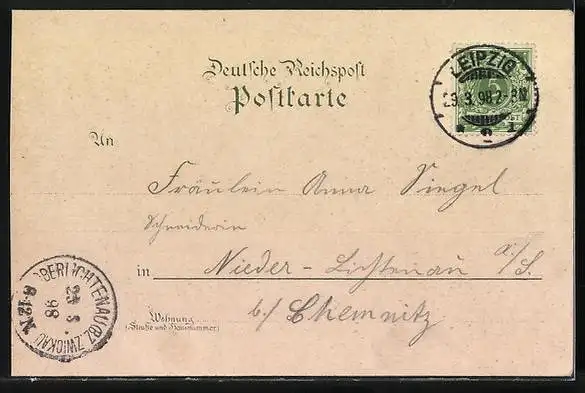 Deutsche Reichspost
Postkarte
LEIPZIG
23.3.98 7-8N
2
An
Fräulein Anna Siegel
Schneiderin
in Nieder-Lichtenau i/S.
b/ Chemnitz
Wohnung
(Straße und Hausnummer)
OBERLICHTENAU BZ. ZWICKAU
98
8-12N